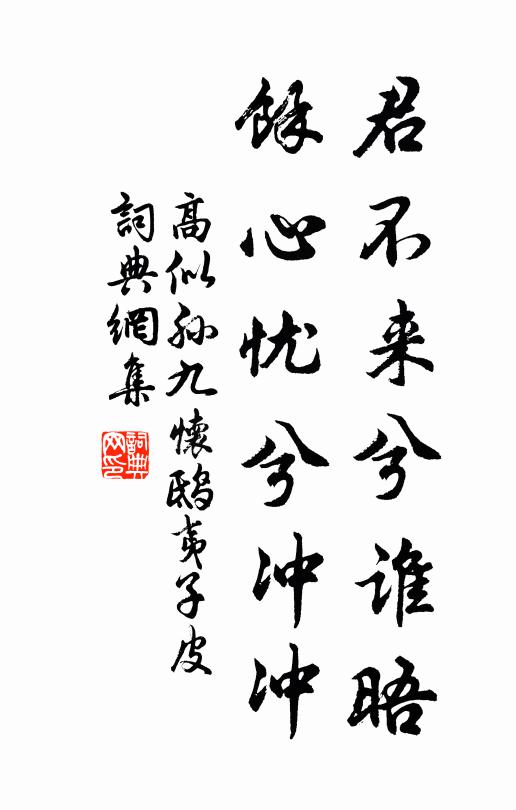 君不来兮谁晤
馀心忧兮冲冲
高似孙九懷鸱夷子皮
詞典網集
詞典网印